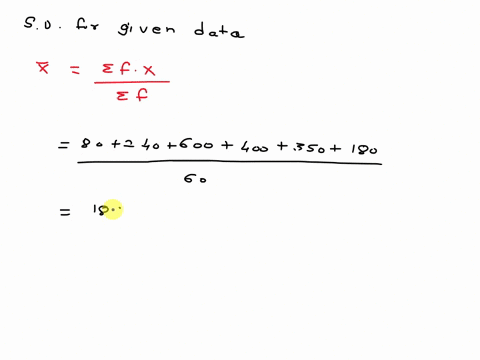 S.D. for given data
x̄ = Σf·x / Σf
= 80 + 240 + 600 + 400 + 350 + 180 / 60
= 180